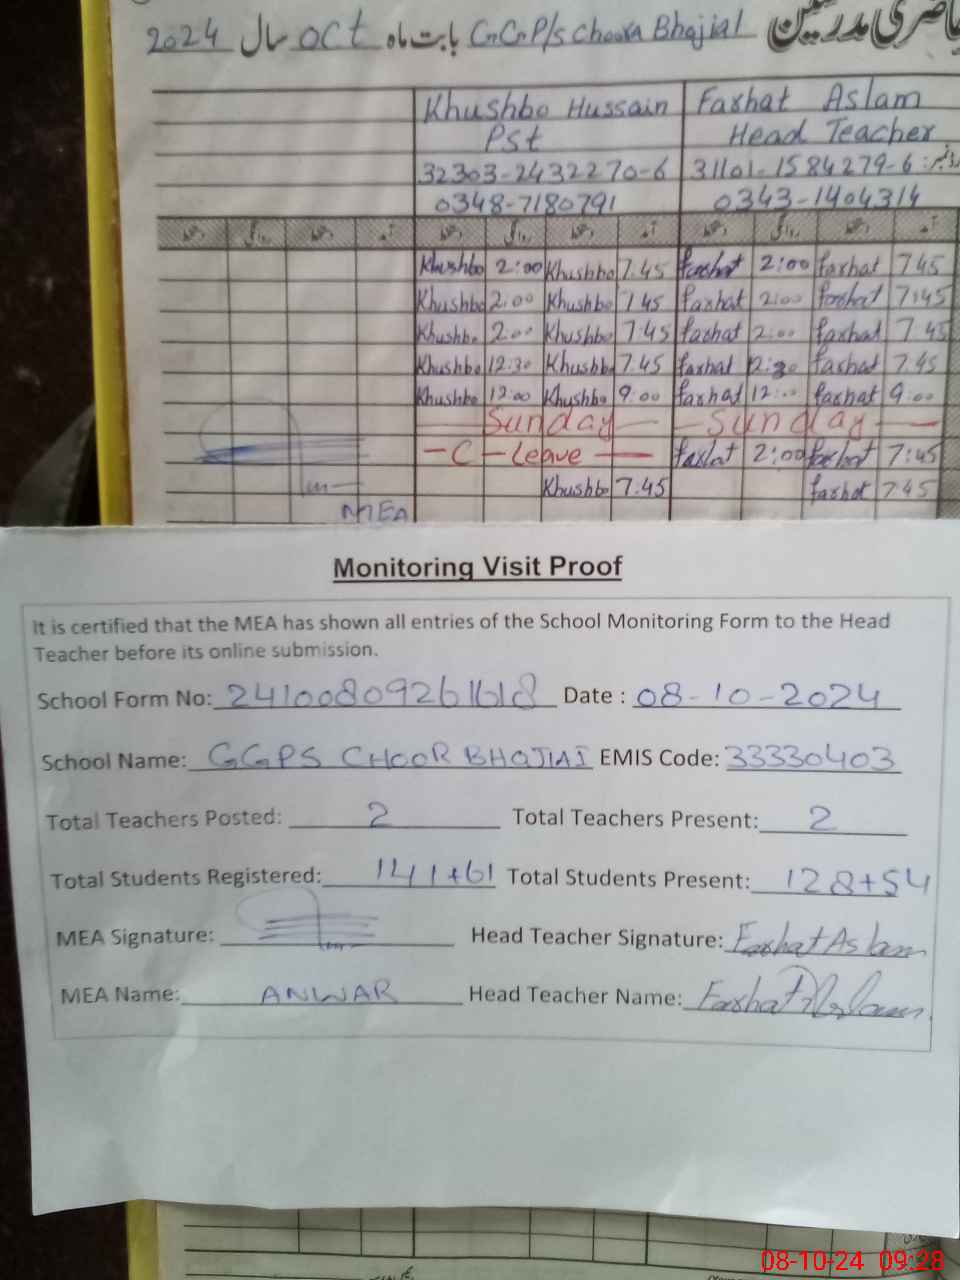 حاضری مدرسین GGP/s Choora Bhajial بابت ماہ Oct سال 2024
Khushbo Hussain Farhat Aslam
Pst Head Teacher
32303-2432270-6 31101-1584279-6
0348-7180791 0343-1404314
Khushbo 2:00 Khushbo 7.45 farhat 2:00 farhat 7 45
Khushbo 2:00 Khushbo 7 45 farhat 2:00 farhat 7:45
Khushbo 2:00 Khushbo 7.45 farhat 2:00 farhat 7.45
Khushbo 12:30 Khushbo 7.45 farhat 12:30 farhat 7.45
Khushbo 12:00 Khushbo 9:00 farhat 12:00 farhat 9:00
Sunday — Sunday —
- C - Leave — farhat 2:00 farhat 7:45
Khushbo 7.45 farhat 7 45
MEA
Monitoring Visit Proof
It is certified that the MEA has shown all entries of the School Monitoring Form to the Head
Teacher before its online submission.
School Form No: 24100809261618 Date : 08-10-2024
School Name: GGPS CHOOR BHOJIAI EMIS Code: 33330403
Total Teachers Posted: 2 Total Teachers Present: 2
Total Students Registered: 141+61 Total Students Present: 128+54
MEA Signature: Head Teacher Signature: Farhat Aslam
MEA Name: ANWAR Head Teacher Name: Farhat Aslam
08-10-24 09:28